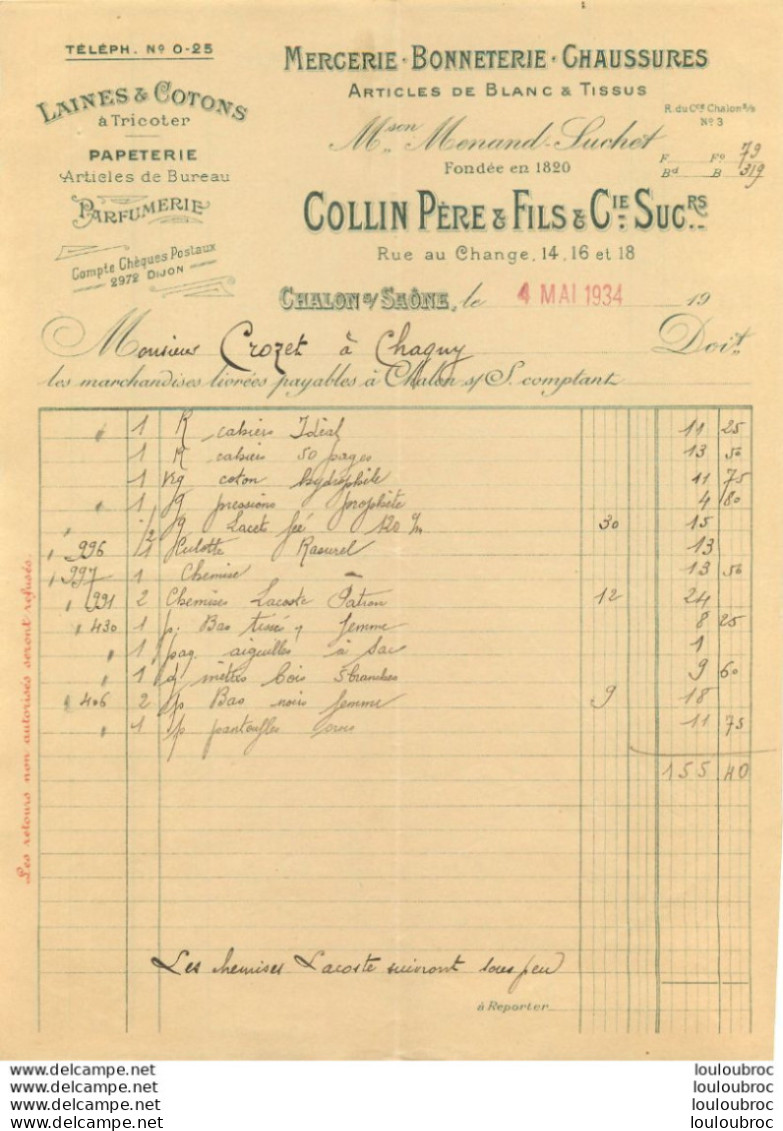 TÉLÉPH. Nº 0-25
MERCERIE · BONNETERIE · CHAUSSURES
ARTICLES DE BLANC & TISSUS
LAINES & COTONS
à Tricoter
PAPETERIE
Articles de Bureau
PARFUMERIE
Compte Chèques Postaux
2972 DIJON
R. du Cce Chalon s/s
Nº 3
Mson Menand-Suchet
Fondée en 1820
F Fº 79
Bd B 319
COLLIN PÈRE & FILS & CIE SUCRS
Rue au Change, 14, 16 et 18
CHALON s/ SAÔNE, le 4 MAI 1934 19
Monsieur Crozet à Chagny Doit
les marchandises livrées payables à Chalon s/ S. comptant
" 1 R cahiers Idéal 11 25
1 R cahiers 50 pages 13 50
1 Kg coton hydrophile 11 75
" 1 g pressions prophète 4 80
" 1/2 g Lacet 120 c/m 30 15
" 996 1 Culotte Rasurel 13
" 997 1 Chemise – 13 50
" 991 2 Chemises Lacoste Patron 12 24
" 430 1 p. Bas femme 8 25
" 1 paq. aiguilles à sac 1
" 1 d mètres bois 5 branches 9 60
" 406 2 p Bas noirs femme 9 18
" 1 p pantoufles 11 75
155 40
Les chemises Lacoste suivront sous peu
à Reporter
Les retours non autorisés seront refusés.
www.delcampe.net louloubroc
www.delcampe.net louloubroc
www.delcampe.net louloubroc
www.delcampe.net louloubroc